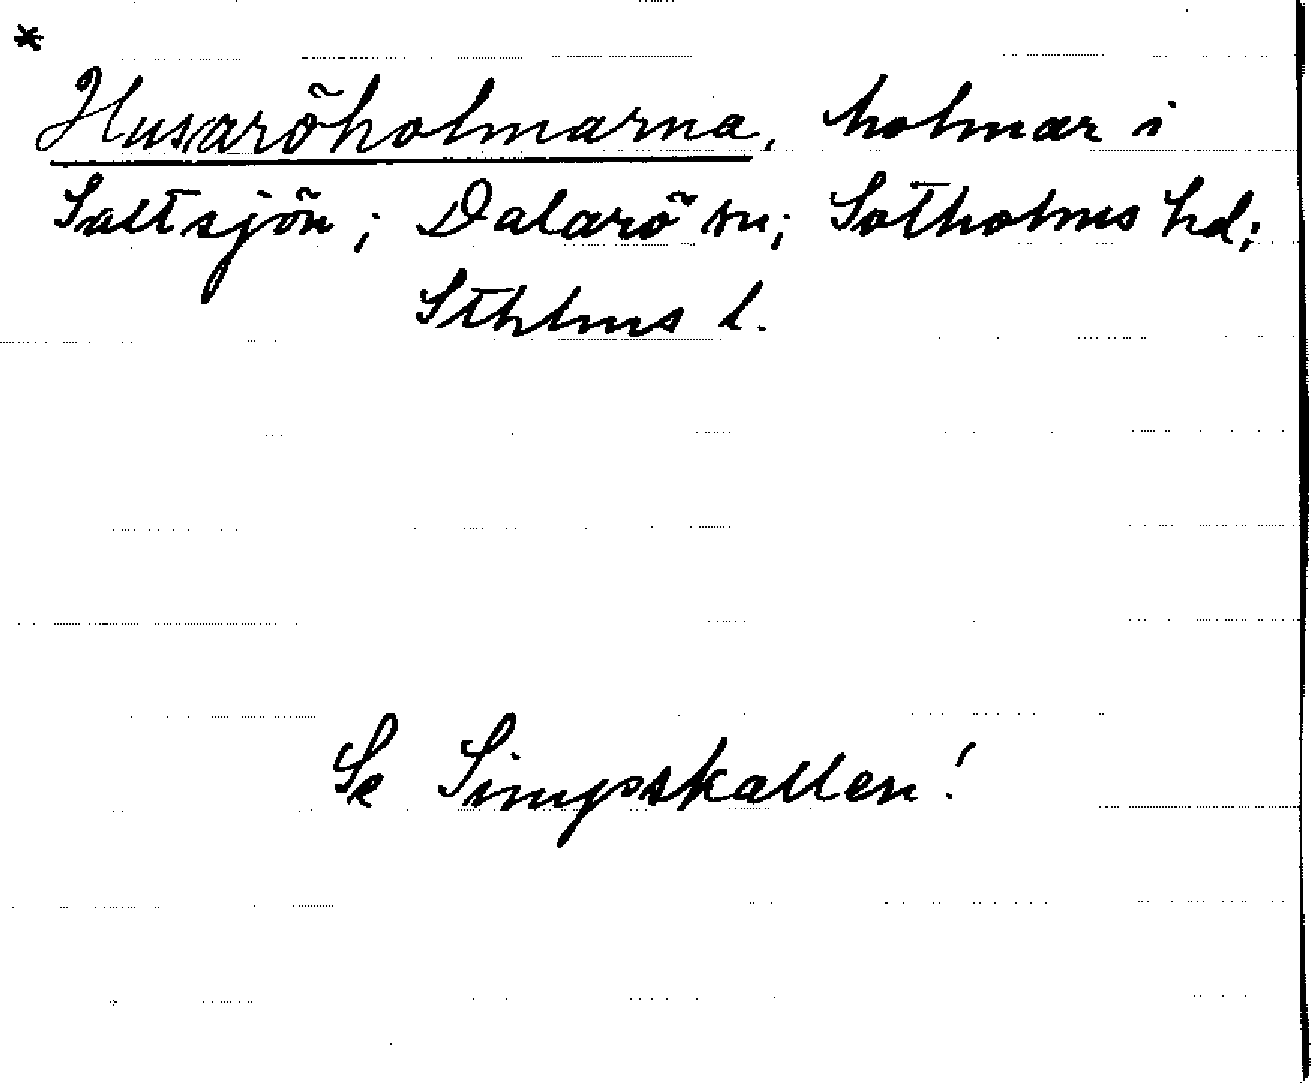 *
Husaröholmarna, holmar i
Saltsjön; Dalarö sn; Sotholms hd;
Sthlms l.
Se Simpskallen!